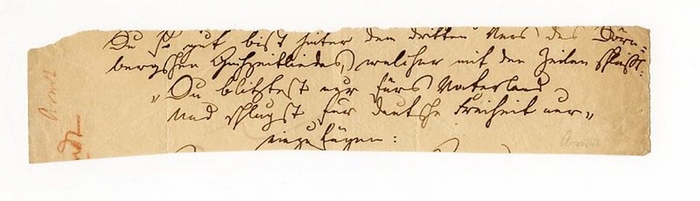 Du so gut bist hinter dem dritten Vers des Dörn-
bergschen Hochzeitliedes, welcher mit den Zeilen schließt:
„Du blitztest nur fürs Vaterland
und schlugst für deutsche Freiheit nur„
einzufügen:
Arndt